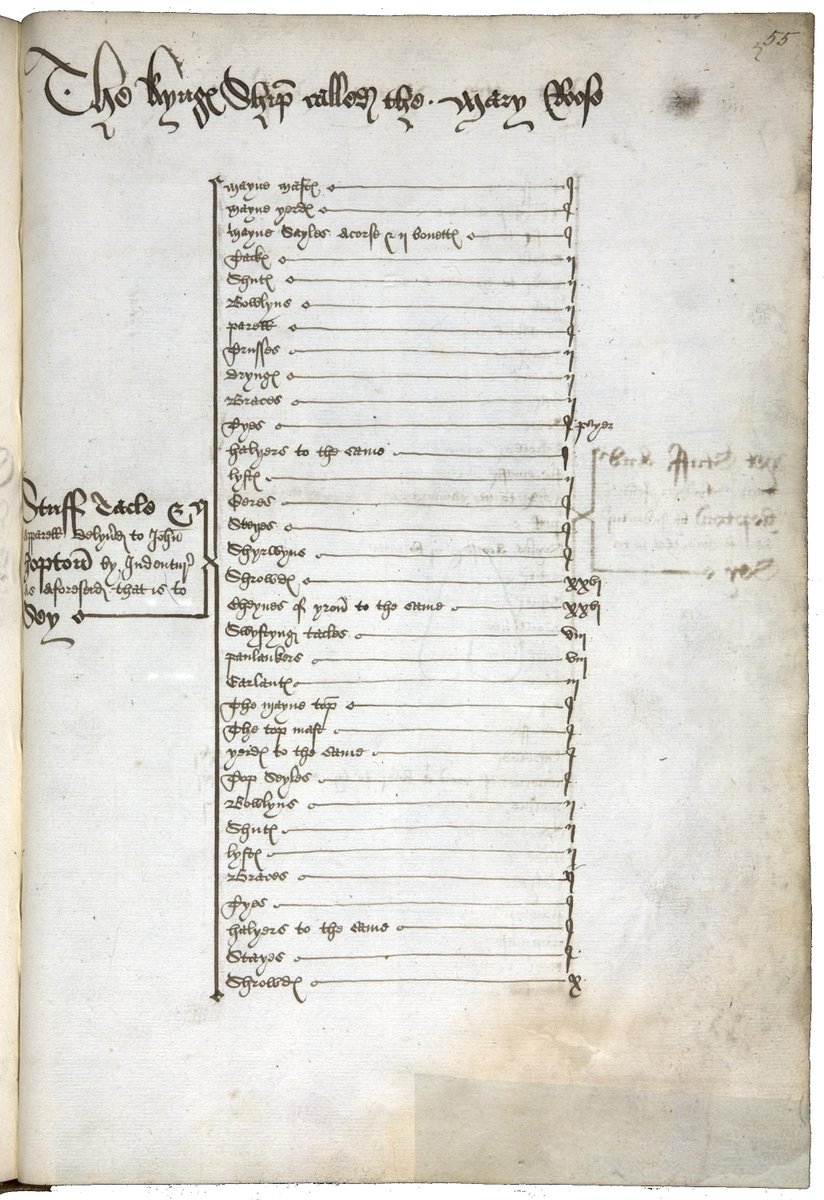 55
The kyngs Ship called the Mary Roose
Stuff Tacle &
apparell delyv'ed to John
Hopton by Indentur'
as aforeseid that is to
Sey
mayne mastes j
mayne yerdes j
mayne Sayles acorse & ij bonettes j
Tackes ij
Shutes ij
Bowlyns ij
parell j
Trusses ij
dryngs ij
Braces ij
Tyes j peyer
halyers to the same j
lyftes ij
Teres j
Steyes j
Shyrwyns j
Shrowdes xxvj
Cheynes of yron to the same xxvj
Swyftyng tacles viij
panlankers viij
Garlantes iij
The mayne top j
The top mast j
yerdes to the same j
Top Seyles j
Bowlyns ij
Shutes ij
lyftes ij
Braces ij
Tyes j
halyers to the same j
Stayes j
Shrowdes x